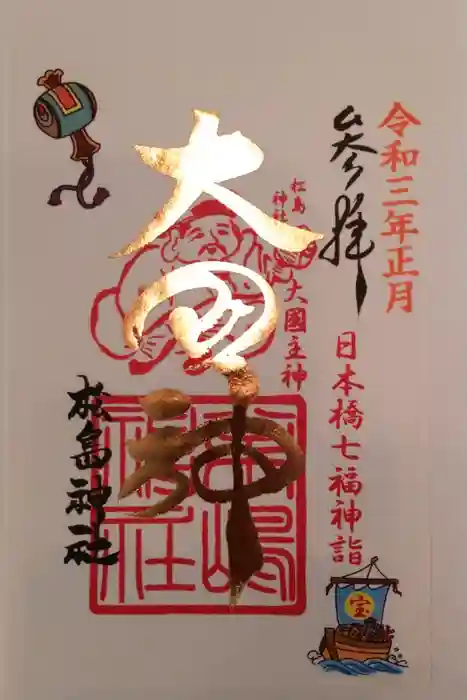 令和三年正月
参拝
日本橋七福神詣
宝
松島
神社
大國主神
大国神
松島神社